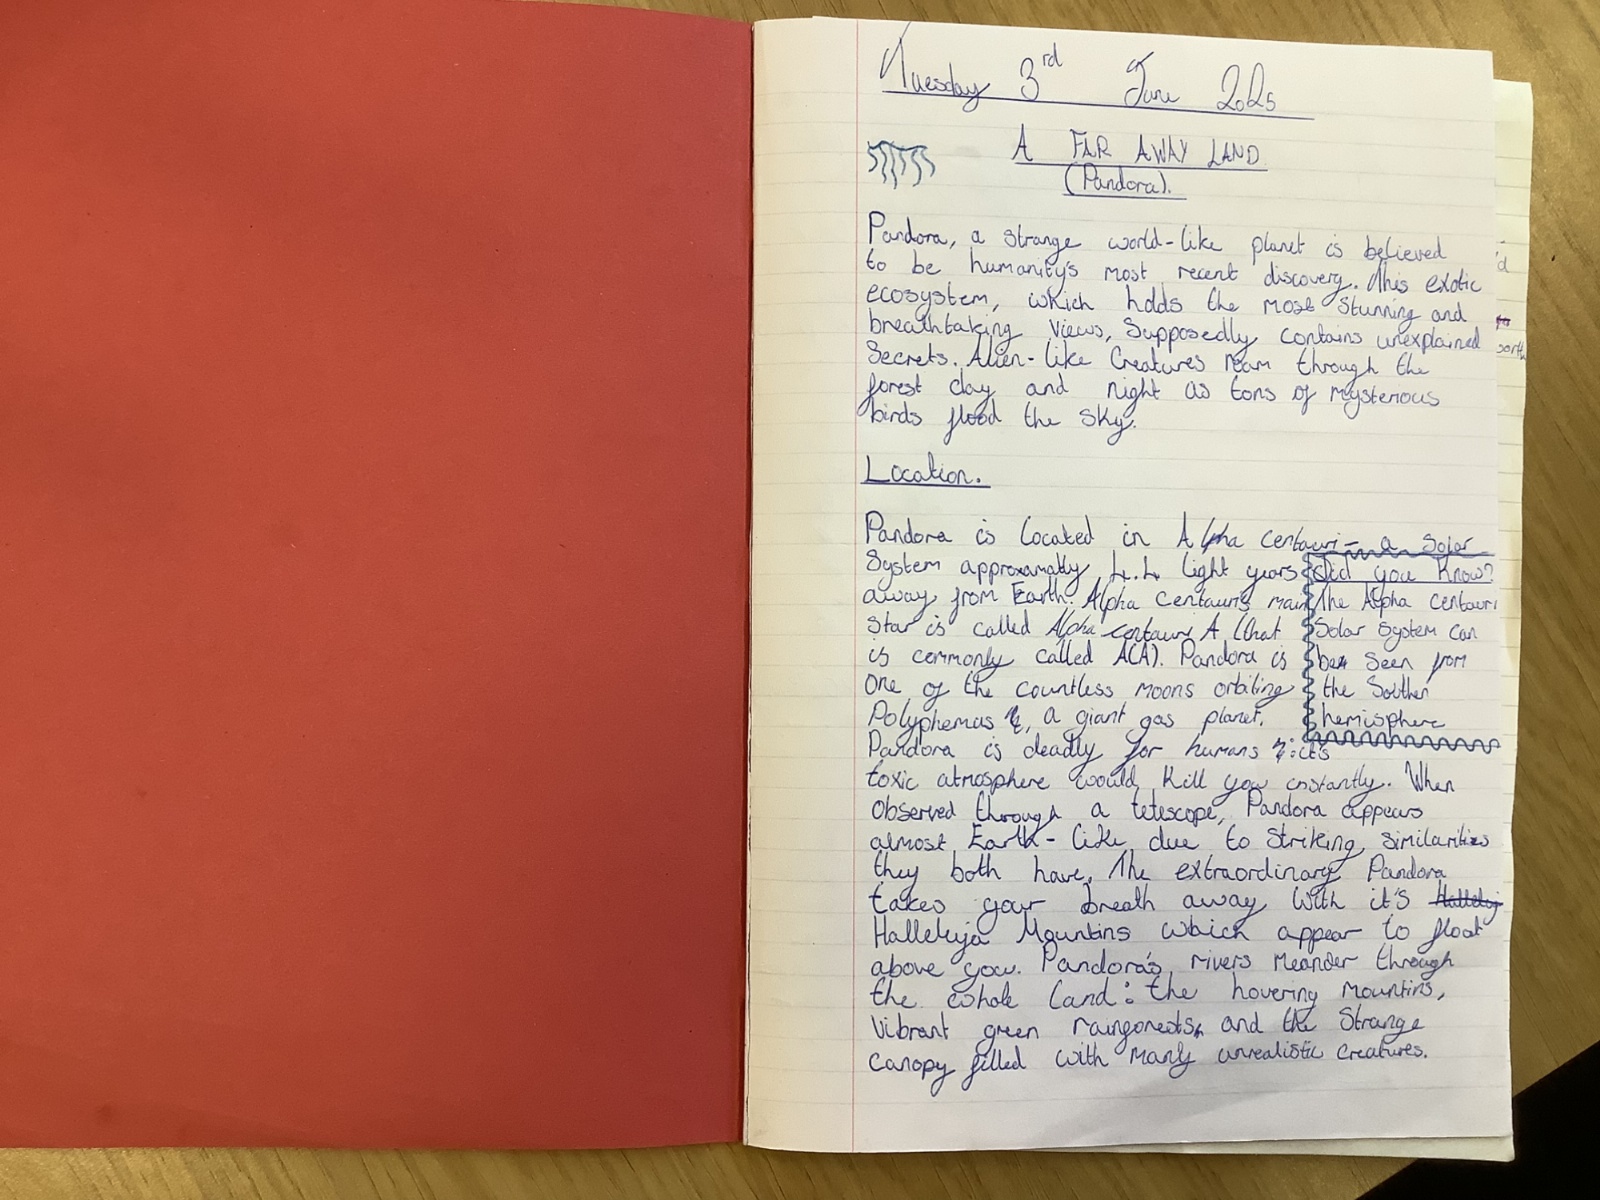 Tuesday 3rd June 2025
A FAR AWAY LAND
(Pandora).
Pandora, a strange world-like planet is believed
to be humanity's most recent discovery. This exotic
ecosystem, which holds the most stunning and
breathtaking views, supposedly contains unexplained
secrets. Alien-like creatures roam through the
forest day and night as tons of mysterious
birds flood the sky.
Location.
Pandora is located in Alpha centauri- a solar
system approxamatly 4.4 light years
away from Earth. Alpha centauris main
star is called Alpha centauri A (that
is commonly called ACA). Pandora is
one of the countless moons orbiting
Polyphemus, a giant gas planet.
Pandora is deadly for humans : it's
toxic atmosphere would kill you instantly. When
observed through a telescope, Pandora appears
almost Earth-like due to striking similarities
they both have. The extraordinary Pandora
takes your breath away with it's Halleluj
Halleluja Mountins which appear to float
above you. Pandora's rivers meander through
the whole land: the hovering mountins,
vibrant green raingorests, and the strange
canopy filled with many unrealistic creatures.
Did you know?
The Alpha centauri
Solar system can
be seen from
the Southern
hemisphere